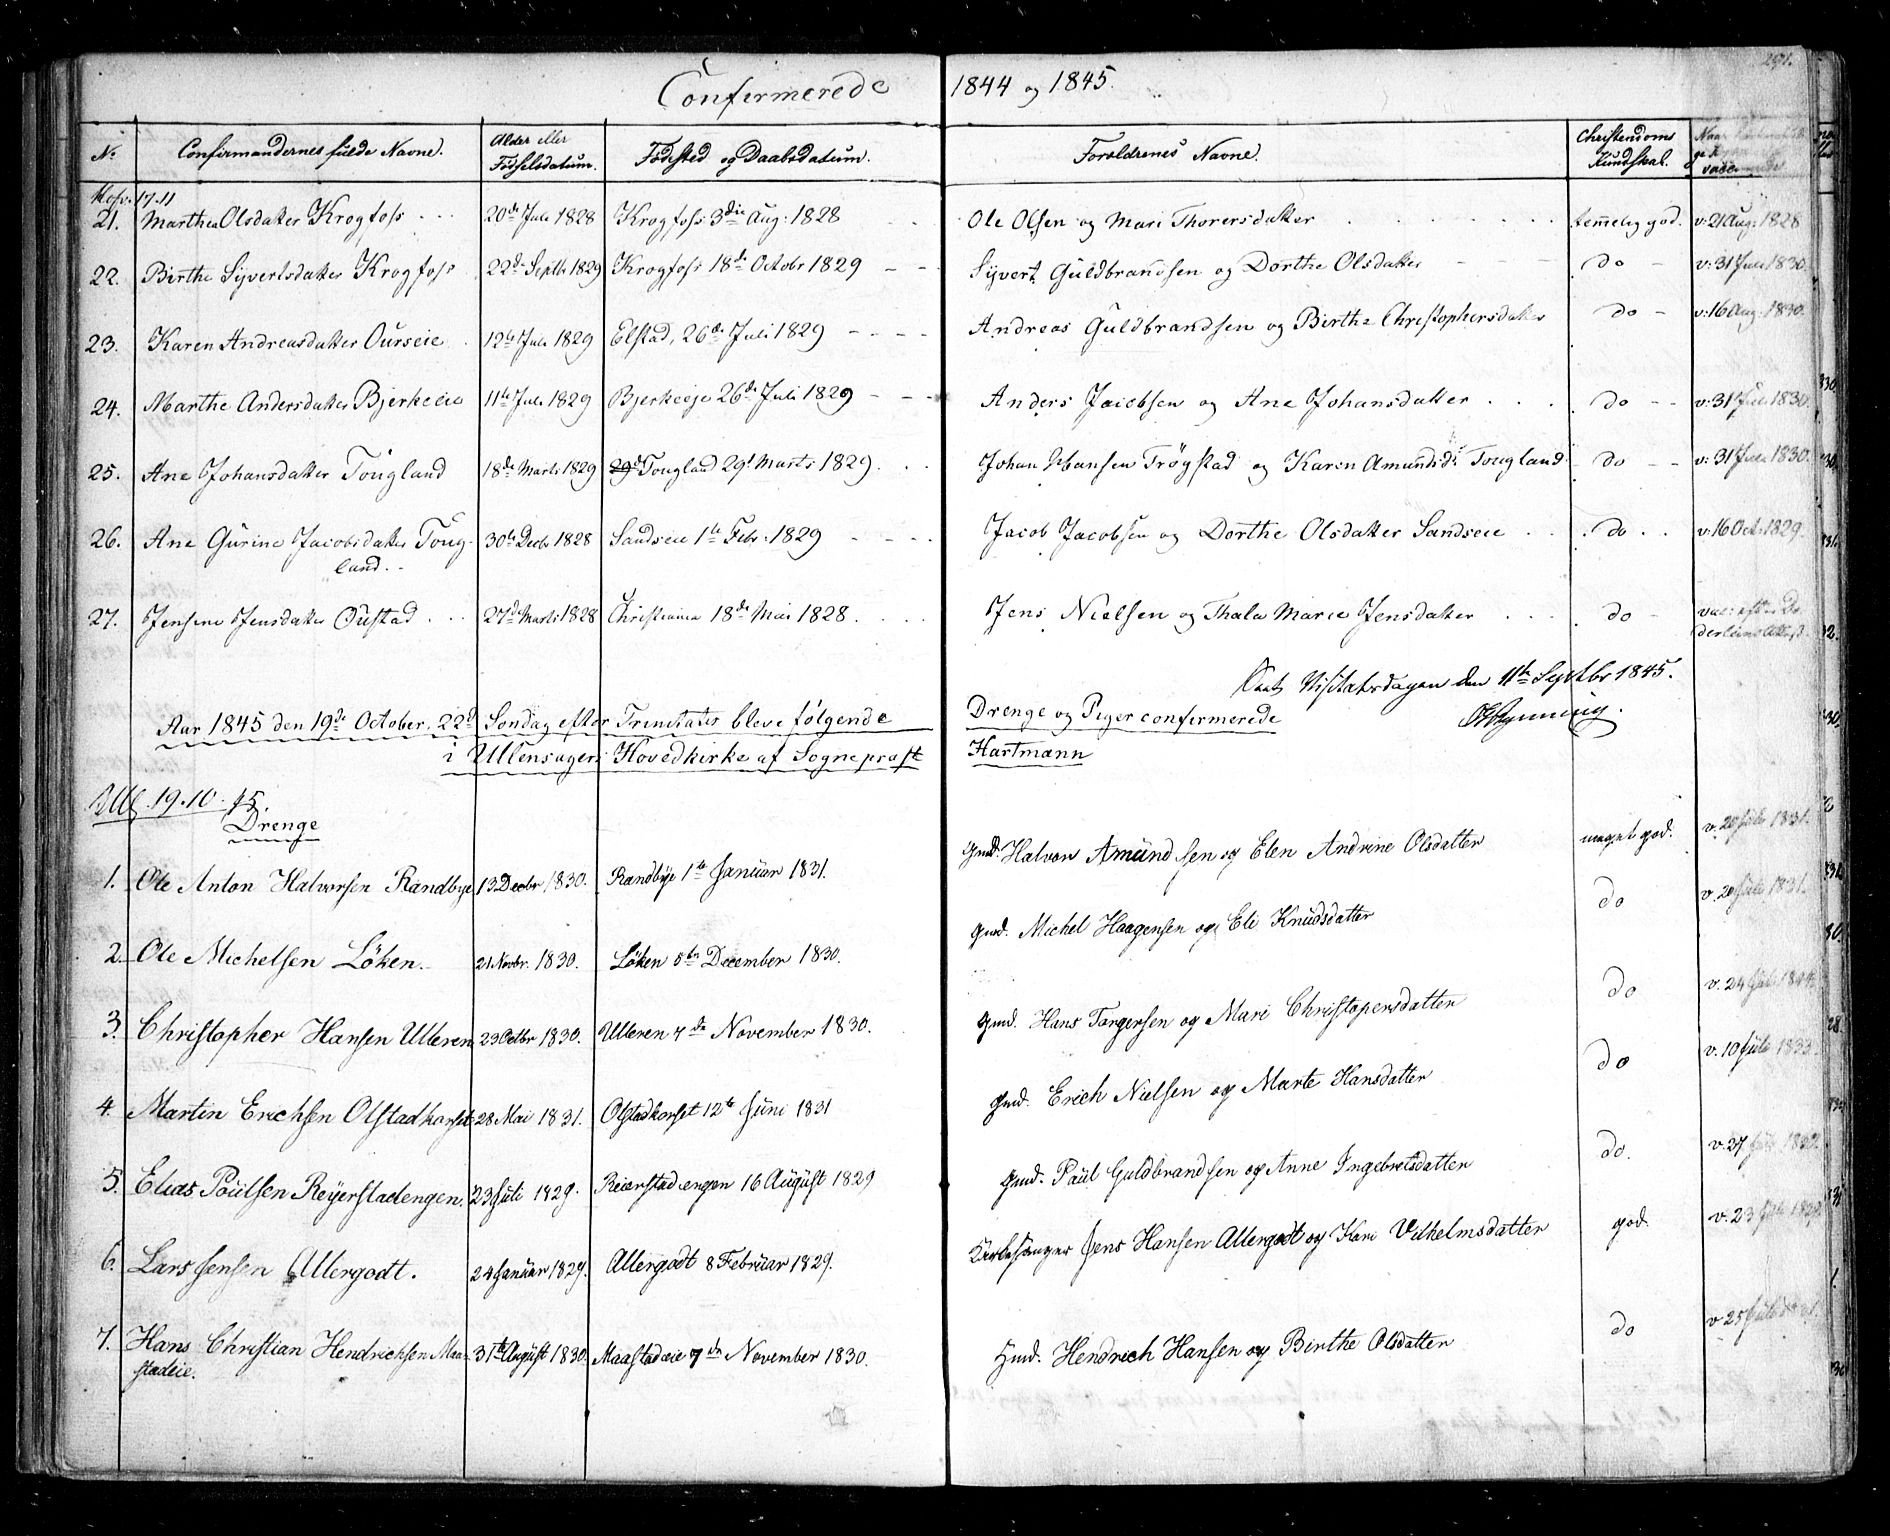 Confirmerede 1844 og 1845.
291.
No Confirmandernes fulde Navne. Alder eller Fødselsdatum. Fødested og Daabsdatum. Forældrenes Navne. Christendoms Kundskab. Naar
17.11
21. Marthea Olsdatter Krogfoss 20de Juli 1828 Krogfoss 3die Aug: 1828 Ole Olsen og Mari Thorersdatter temelig god. v: 21 Aug: 1828
22. Birthe Syvertsdatter Krogfoss 22d Septbr 1829 Krogfoss 18de Octobr 1829 Syvert Guldbrandsen og Dorthe Olsdatter do v: 31 Juli 1830.
23. Karen Andreasdatter Ourseie 12te Juli 1829 Elstad, 26de Juli 1829 Andreas Guldbrandsen og Birthe Christophersdatter do v: 16 Aug. 1830.
24. Marthe Andersdatter Bjerkeeie 11te Juli 1829 Bjerkeeje 26de Juli 1829 Anders Jacobsen og Ane Johansdatter do v: 31 Juli 1830.
25. Ane Johansdatter Tougland 18de Marts 1829 29d Tougland 29d Marts 1829. Johan Hansen Trøgstad og Karen Amundsd: Tougland do v: 31 Juli 1830.
26. Ane Gurine Jacobsdatter Toug- 30te Decbr 1828 Sandseie 1te Febr: 1829 Jacob Jacobsen og Dorthe Olsdatter Sandseie do v: 16 Oct. 1829.
land.
27. Jensine Jensdatter Oustad 27d Marts 1828 Christiania 18de Mai 1828. Jens Nielsen og Thala Marie Jensdatter do vac: efter
Visitatsdagen den 11te Septbr 1845.
Aar 1845 den 19de October, 22d Søndag efter Trinitatis bleve følgende Drenge og Piger confirmerede
i Ullensagers Hovedkirke af Sognepræst Hartmann
Ull. 19.10.45.
Drenge
1. Ole Anton Halvorsen Randbye 13 Decbr 1830. Randbye 1te Januar 1831. Gmd. Halvor Amundsen og Elen Andrine Olsdatter meget god. v. 20 Juli 1831.
2. Ole Michelsen Löken. 21 Novbr. 1830. Löken 5te December 1830. Gmd. Michel Haagensen og Eli Knudsdatter do v. 20 Juli 1831.
3. Christopher Hansen Ulleren 23 Octbr 1830. Ulleren 7de November 1830. Gmd. Hans Torgersen og Mari Christopersdatter do v. 24 Juli
4. Martin Erichsen Olstadkorset 28 Mai 1831. Olstadkorset 12te Juni 1831 Gmd. Erich Nielsen og Marte Hansdatter do v. 10 Juli 1833.
5. Elias Poulsen Reyerstadengen. 23 Juli 1829. Reierstadengen 16 August 1829 Gmd. Paul Guldbrandsen og Anne Ingebretsdatter do. v. 27
6. Lars Jensen Allergodt. 24 Januar 1829. Allergodt 8 Februar 1829. Kirkesanger Jens Hansen Allergodt og Kari Vilhelmsdatter god. v. 23
7. Hans Christian Hendrichsen Maa- 31te August 1830. Maastadeie 7de November 1830. Hmd. Hendrich Hansen og Birthe Olsdatter do v 25
stadeie.